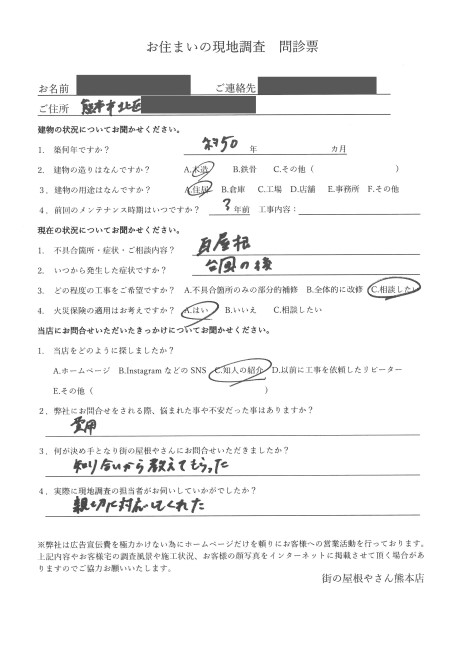 お住まいの現地調査 問診票
お名前 ご連絡先
ご住所 熊本市北区
建物の状況についてお聞かせください。
1. 築何年ですか? 約50 年 カ月
2. 建物の造りはなんですか? A.木造 B.鉄骨 C.その他( )
3. 建物の用途はなんですか? A.住居 B.倉庫 C.工場 D.店舗 E.事務所 F.その他
4. 前回のメンテナンス時期はいつですか? 3 年前 工事内容:
現在の状況についてお聞かせください。
1. 不具合箇所・症状・ご相談内容? 瓦屋根
2. いつから発生した症状ですか? 台風の後
3. どの程度の工事をご希望ですか? A.不具合箇所のみの部分的補修 B.全体的に改修 C.相談したい
4. 火災保険の適用はお考えですか? A.はい B.いいえ C.相談したい
当店にお問合せいただいたきっかけについてお聞かせください。
1. 当店をどのように探しましたか?
A.ホームページ B.Instagram などの SNS C.知人の紹介 D.以前に工事を依頼したリピーター
E.その他( )
2. 弊社にお問合せをされる際、悩まれた事や不安だった事はありますか?
費用
3. 何が決め手となり街の屋根やさんにお問合せいただきましたか?
知り合いから教えてもらった
4. 実際に現地調査の担当者がお伺いしていかがでしたか?
親切に対応してくれた
※弊社は広告宣伝費を極力かけない為にホームページだけを頼りにお客様への営業活動を行っております。
上記内容やお客様宅の調査風景や施工状況、お客様の顔写真をインターネットに掲載させて頂く場合があ
りますのでご協力お願いいたします。
街の屋根やさん熊本店